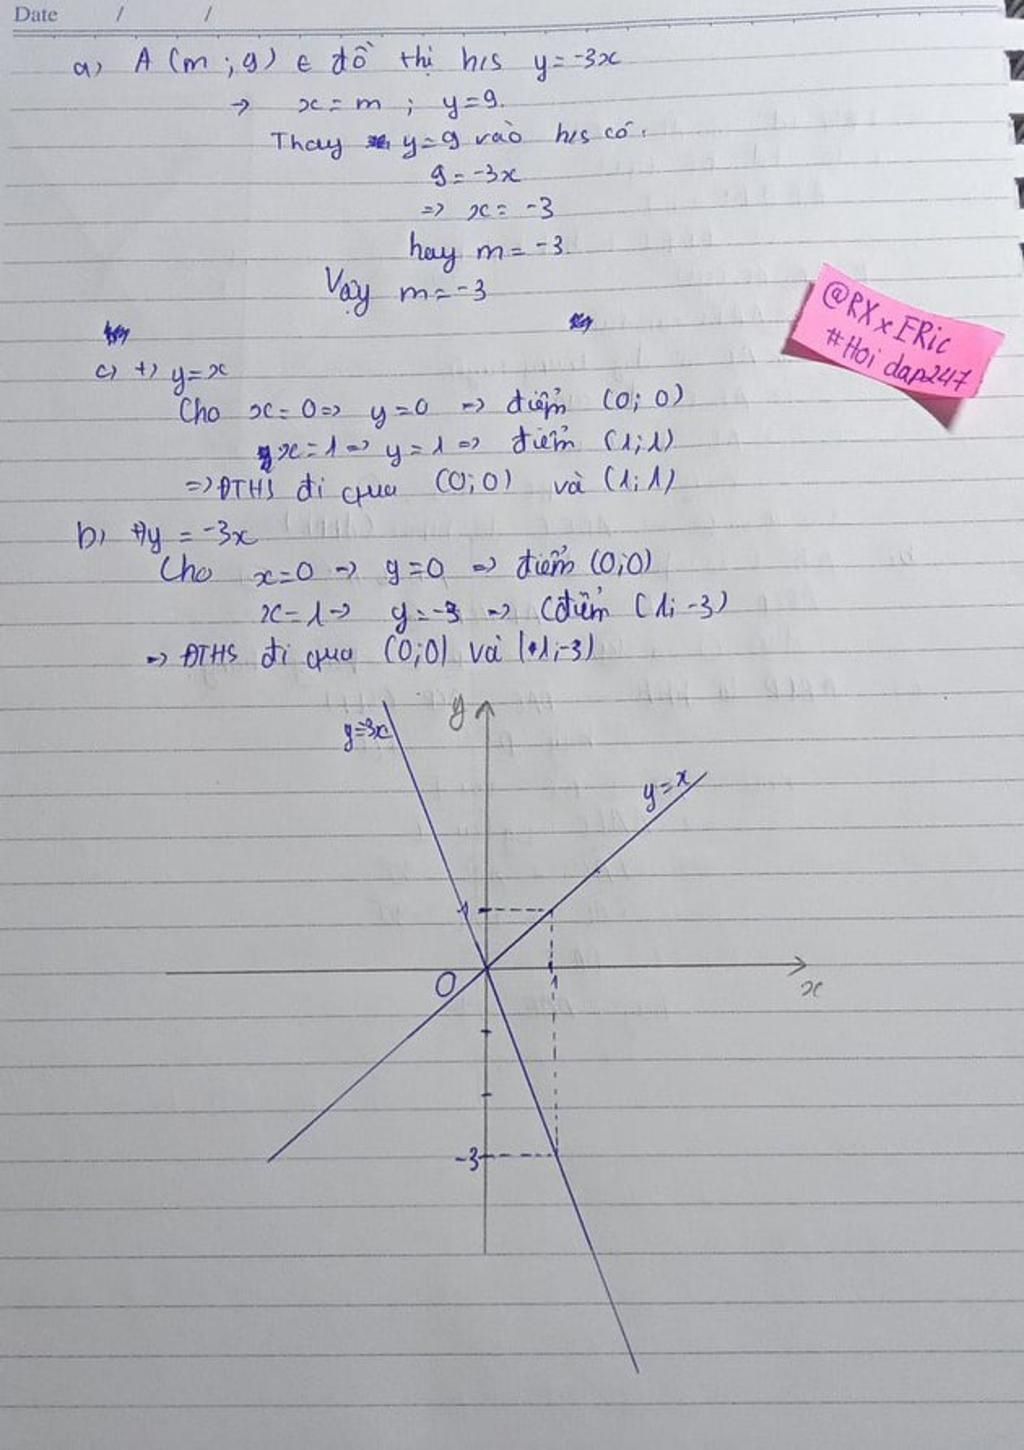 Date / /
a) A (m ; 9) ∈ đồ thị h/s y=-3x
→ x = m ; y=9.
Thay y=9 vào h/s có.
9=-3x
=> x= -3
hay m= -3.
Vậy m=-3
@RX x ERic
#Hoi dap247
c) +) y=x
Cho x= 0=> y=0 => điểm (0; 0)
x=1=> y=1 => điểm (1;1)
=>ĐTHS đi qua (0;0) và (1;1)
b) +) y = -3x
Cho x=0 => y=0 => điểm (0;0)
x=1=> y=-3 => (điểm (1;-3)
=> ĐTHS đi qua (0;0) và (1;-3)
y=-3x y
y=x
1
O 1 x
-3